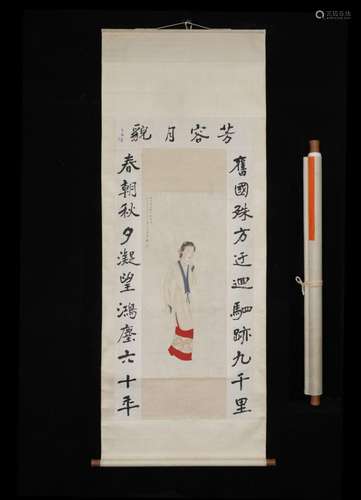 芳容月貌
舊國殊方迂迴駟跡九千里
春朝秋夕凝望鴻塵六十年